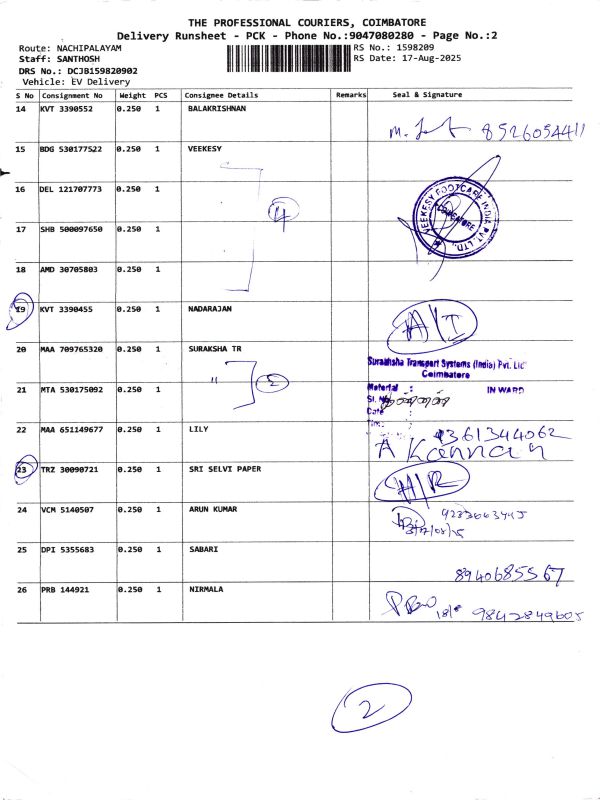 THE PROFESSIONAL COURIERS, COIMBATORE
Delivery Runsheet - PCK - Phone No.:9047080280 - Page No.:2
Route: NACHIPALAYAM RS No.: 1598209
Staff: SANTHOSH RS Date: 17-Aug-2025
DRS No.: DCJB159820902
Vehicle: EV Delivery
S No Consignment No Weight PCS Consignee Details Remarks Seal & Signature
14 KVT 3390552 0.250 1 BALAKRISHNAN
8526054411
15 BDG 530177522 0.250 1 VEEKESY
16 DEL 121707773 0.250 1
4
VEEKESY FOOTCARE INDIA PVT. LTD.
COIMBATORE
17 SHB 500097650 0.250 1
18 AMD 30705803 0.250 1
19 KVT 3390455 0.250 1 NADARAJAN
20 MAA 709765320 0.250 1 SURAKSHA TR
Suraksha Transport Systems (India) Pvt. Ltd
Coimbatore
21 MTA 530175092 0.250 1 " 2
Material : IN WARD
Sl. No
Date :
Time :
22 MAA 651149677 0.250 1 LILY
9361344062
A Kannan
23 TRZ 30090721 0.250 1 SRI SELVI PAPER
24 VCM 5140507 0.250 1 ARUN KUMAR
25 DPI 5355683 0.250 1 SABARI
8940685567
26 PRB 144921 0.250 1 NIRMALA
9842849605
2